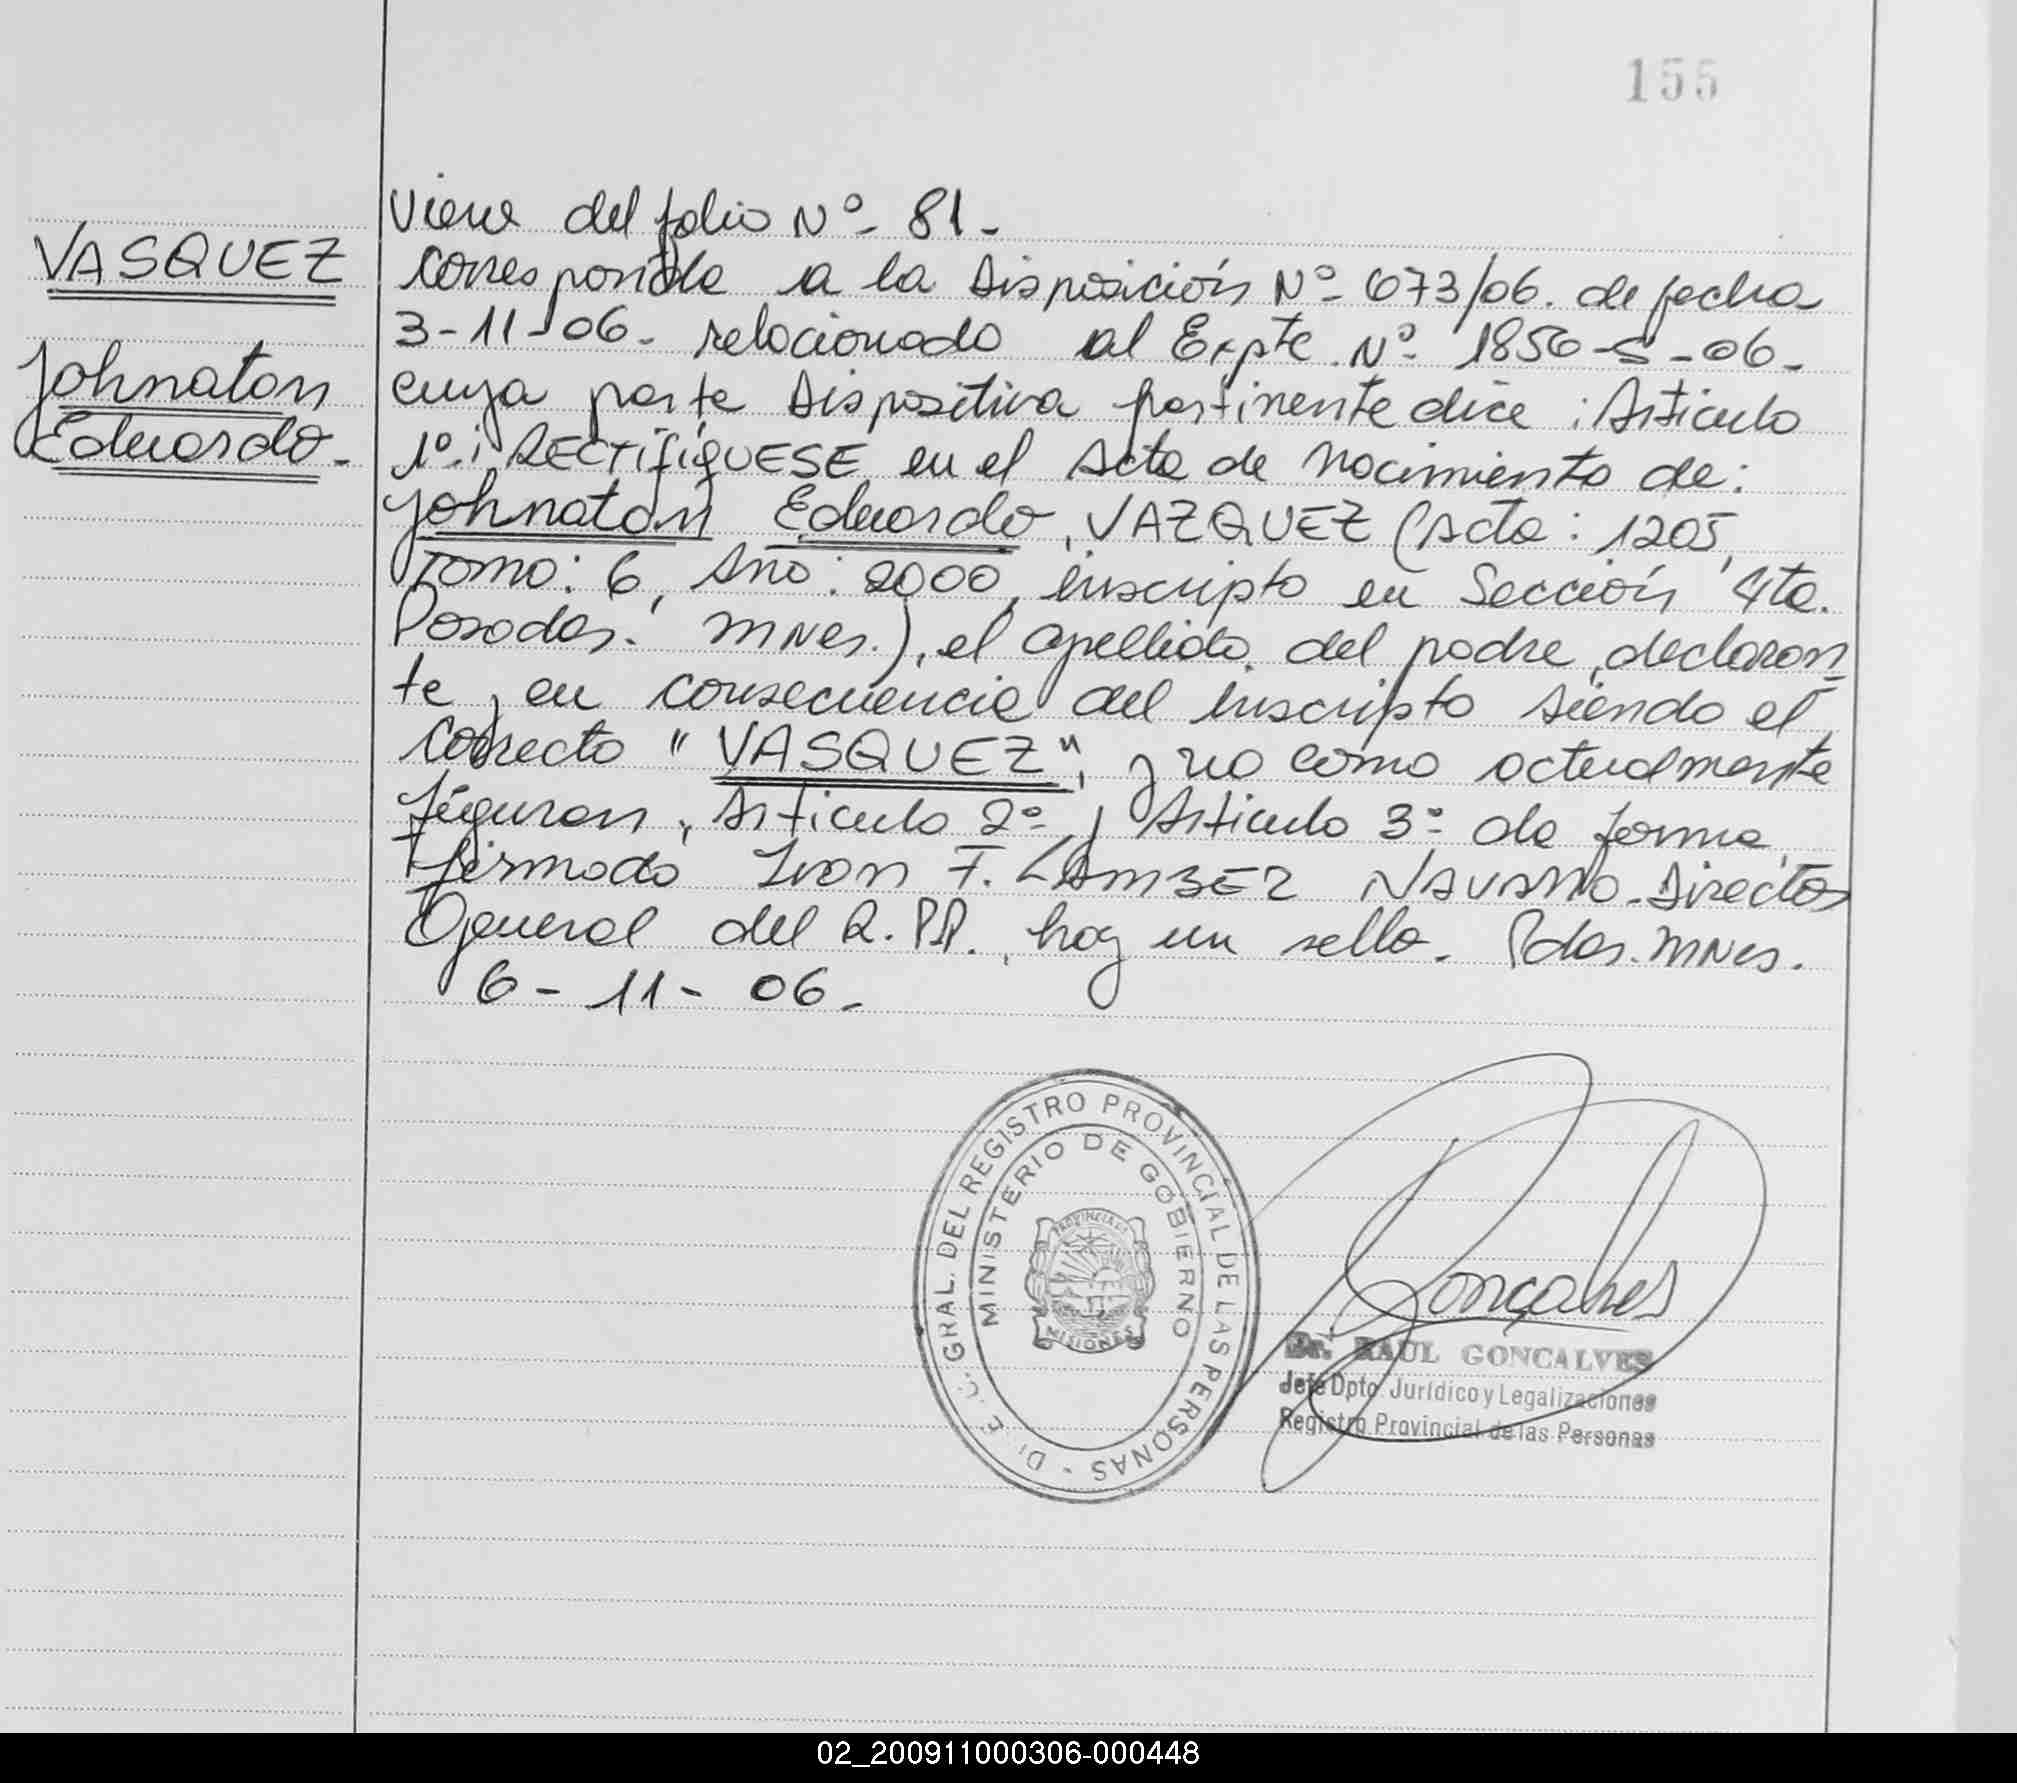 155
VASQUEZ
Johnatan
Eduardo.-
Viene del folio Nº- 81-
corresponde a la Disposición Nº- 673/06. de fecha
3-11-06- relacionado al Expte. Nº- 1856-S-06-
cuya parte Dispositiva pertinente dice: Artículo
1º: RECTIFIQUESE en el Acta de Nacimiento de:
Johnatan Eduardo, VAZQUEZ (Acta: 1205,
Tomo: 6, Año: 2000, inscripto en Sección 4ta.
Posadas. MNes.), el apellido del padre, declaran
te y en consecuencia del inscripto siendo el
correcto "VASQUEZ", y no como actualmente
figuran, Artículo 2º y Artículo 3º de forma,
firmado Ivan F. NAVARRO. Director
General del R.PP., hay un sello. Pdas. MNes.
6-11-06-
DI. E. C. GRAL. DEL REGISTRO PROVINCIAL DE LAS PERSONAS -
MINISTERIO DE GOBIERNO
PROVINCIA
MISIONES
Gonçalves
Dr. RAUL GONCALVES
Jefe Dpto. Jurídico y Legalizaciones
Registro Provincial de las Personas
02_200911000306-000448